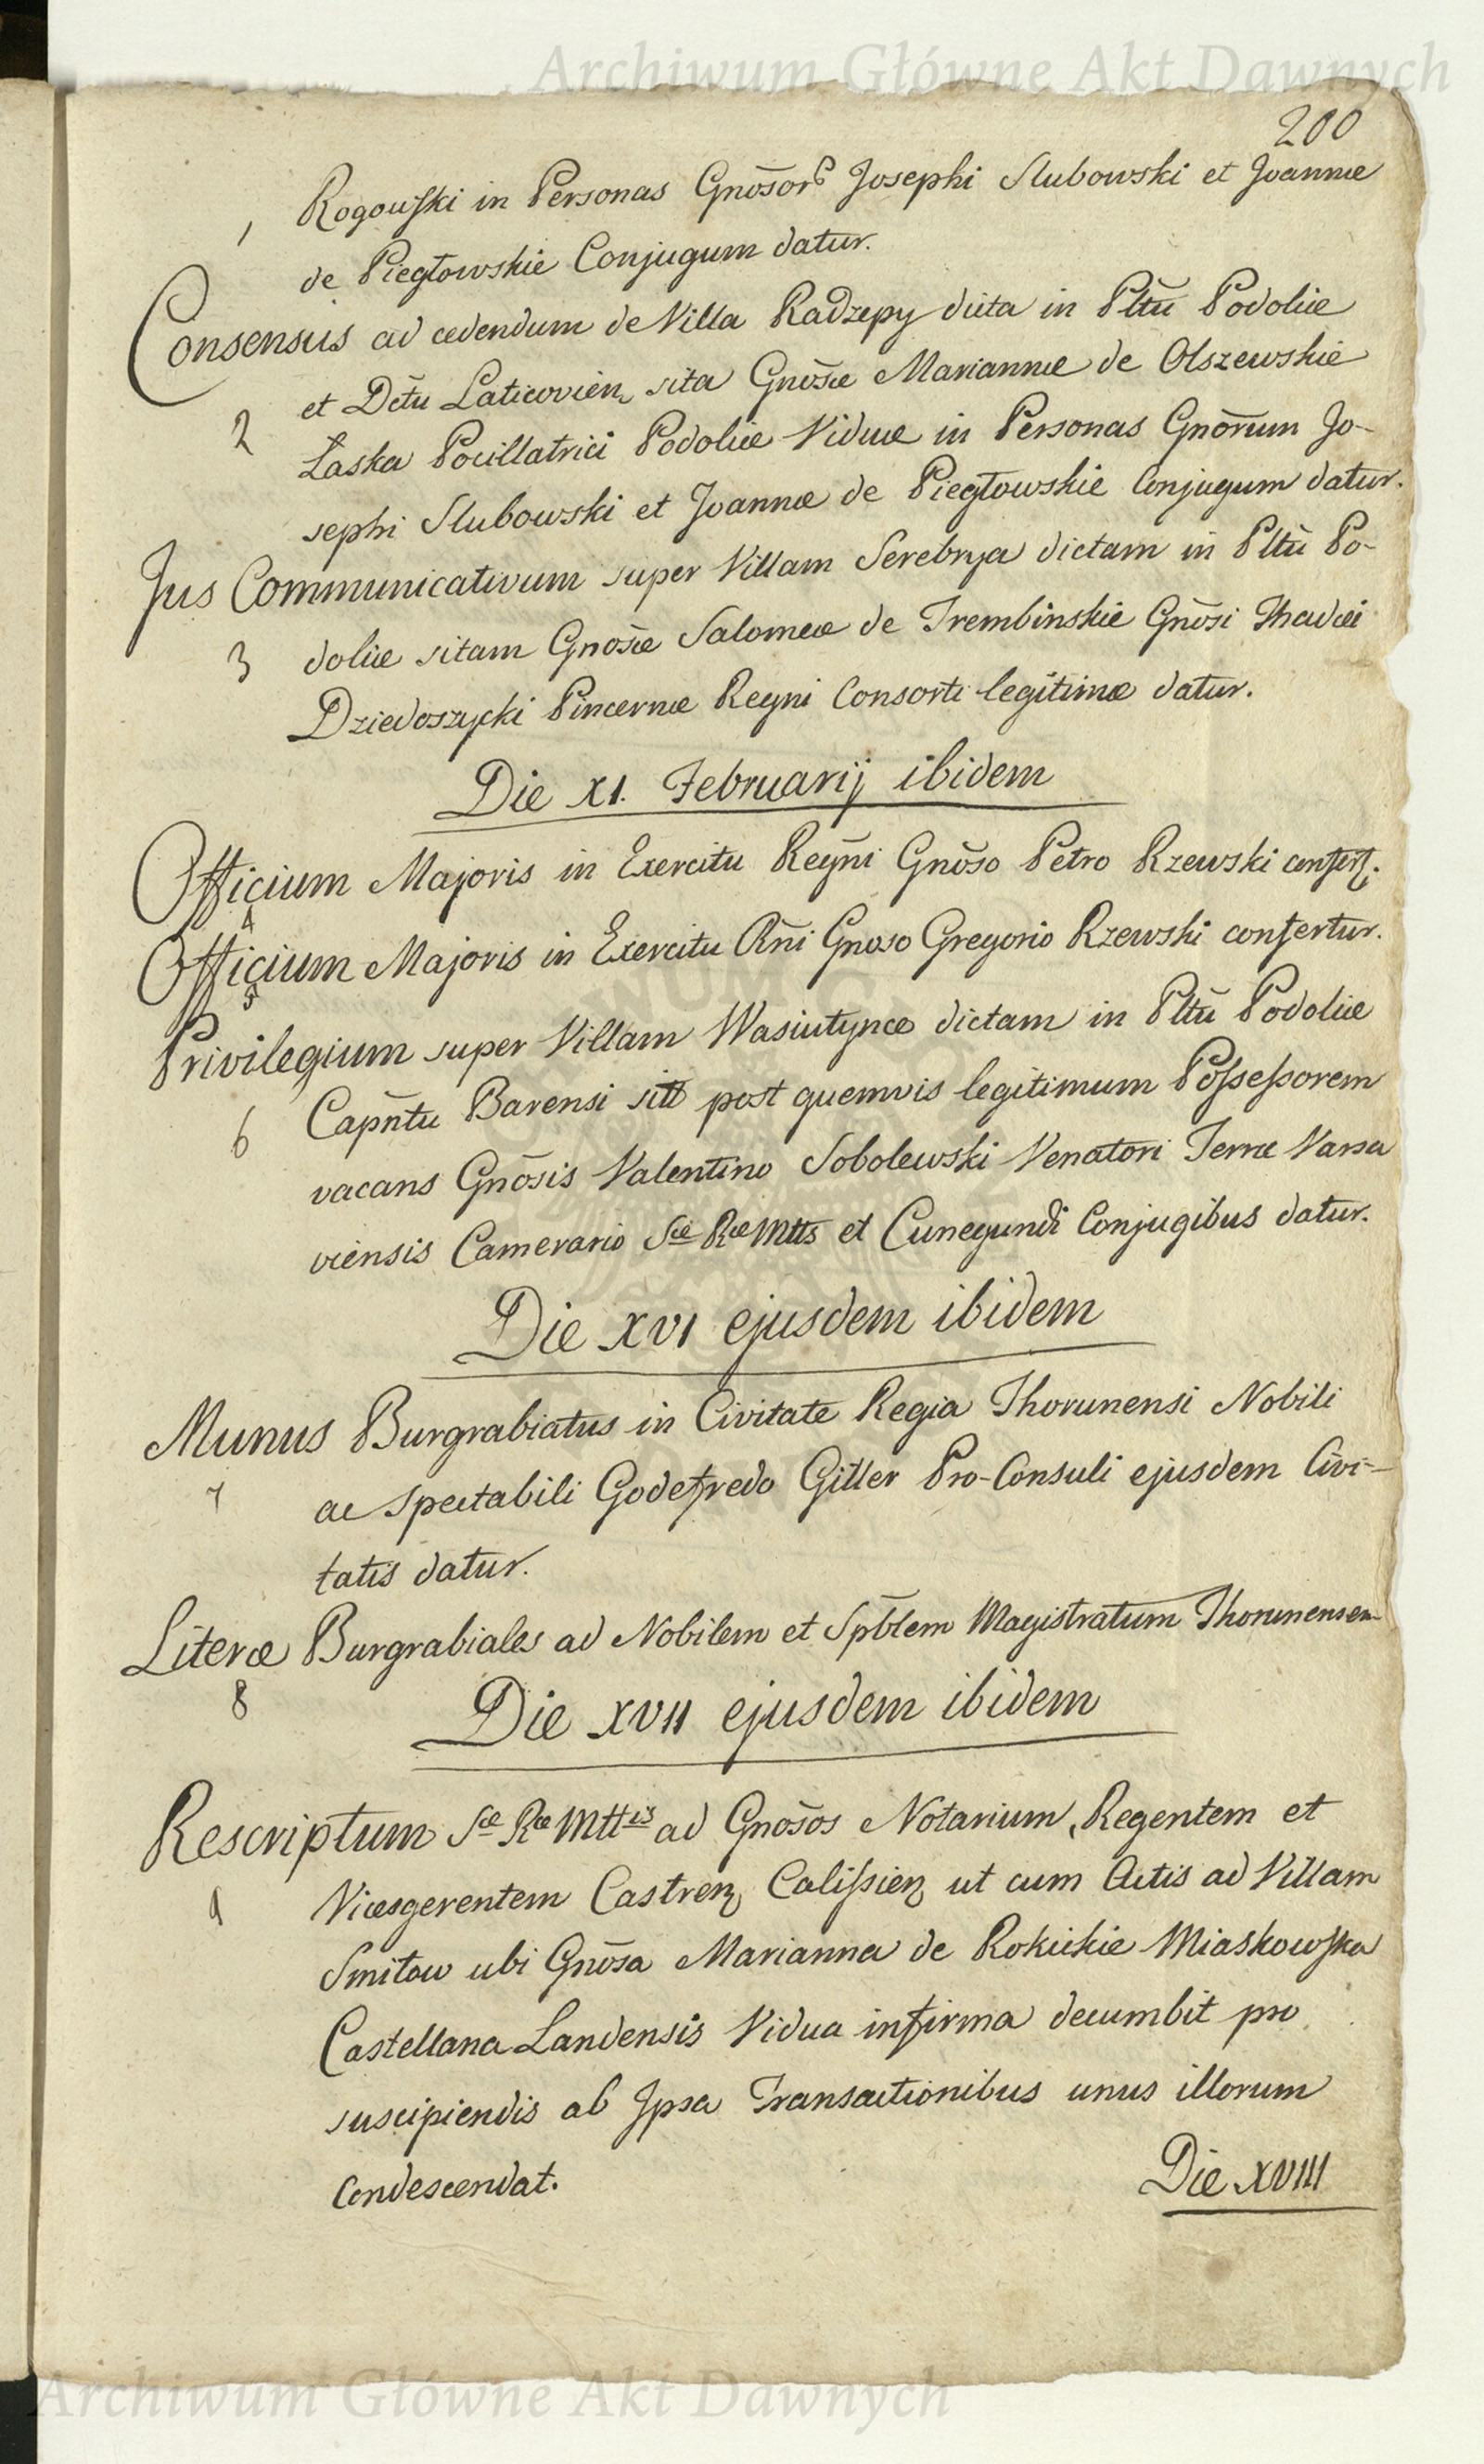 Archiwum Główne Akt Dawnych
200
Rogowski in Personas Gnõsor Josephi Slubowski et Joannæ
1
de Piegłowskie Conjugum datur.
Consensus ad cedendum de Villa Radzepy dicta in Pltũ Podoliæ
et Dẽtu Laticovien, sita Gnõsæ Mariannæ de Olszewskie
2
Łaska Pocillatrici Podoliæ Viduæ in Personas Gnõrum Jo-
sephi Slubowski et Joannæ de Piegłowskie Conjugum datur.
Jus Communicativum super Villam Serebrya dictam in Pltũ Po-
3 doliæ sitam Gnõsæ Salomeæ de Trembinskie Gnõsi Thadæi
Dziedoszycki Pincernæ Regni Consorti legitimæ datur.
Die XI. Februarij ibidem
Officium Majoris in Exercitu Regñi Gnõso Petro Rzewski confert.
4
Officium Majoris in Exercitu Rñi Gnoso Gregorio Rzewski confertur.
5
Privilegium super Villam Wasiutynce dictam in Pltũ Podoliæ
Capñtu Barensi sitt post quemvis legitimum Possessorem
6
vacans Gnõsis Valentino Sobolewski Venatori Terræ Varsa
viensis Camerario Sæ Ræ Mtts et Cunegundi Conjugibus datur.
Die XVI ejusdem ibidem
Munus Burgrabiatus in Civitate Regia Thorunensi Nobili
7
ac spectabili Godefredo Giller Pro-Consuli ejusdem Civi-
tatis datur.
Literæ Burgrabiales ad Nobilem et Spb̃lem Magistratum Thorunensem
8
Die XVII ejusdem ibidem
Rescriptum Sæ Ræ Mttis ad Gnõsos Notarium, Regentem et
9
Vicesgerentem Castren Calissien ut cum Actis ad Villam
Smiłow ubi Gnõsa Marianna de Rokickie Miaskowska
Castellana Landensis Vidua infirma decumbit pro
suscipiendis ab Ipsa Transactionibus unus illorum
condescendat.
Die XVIII
Archiwum Główne Akt Dawnych